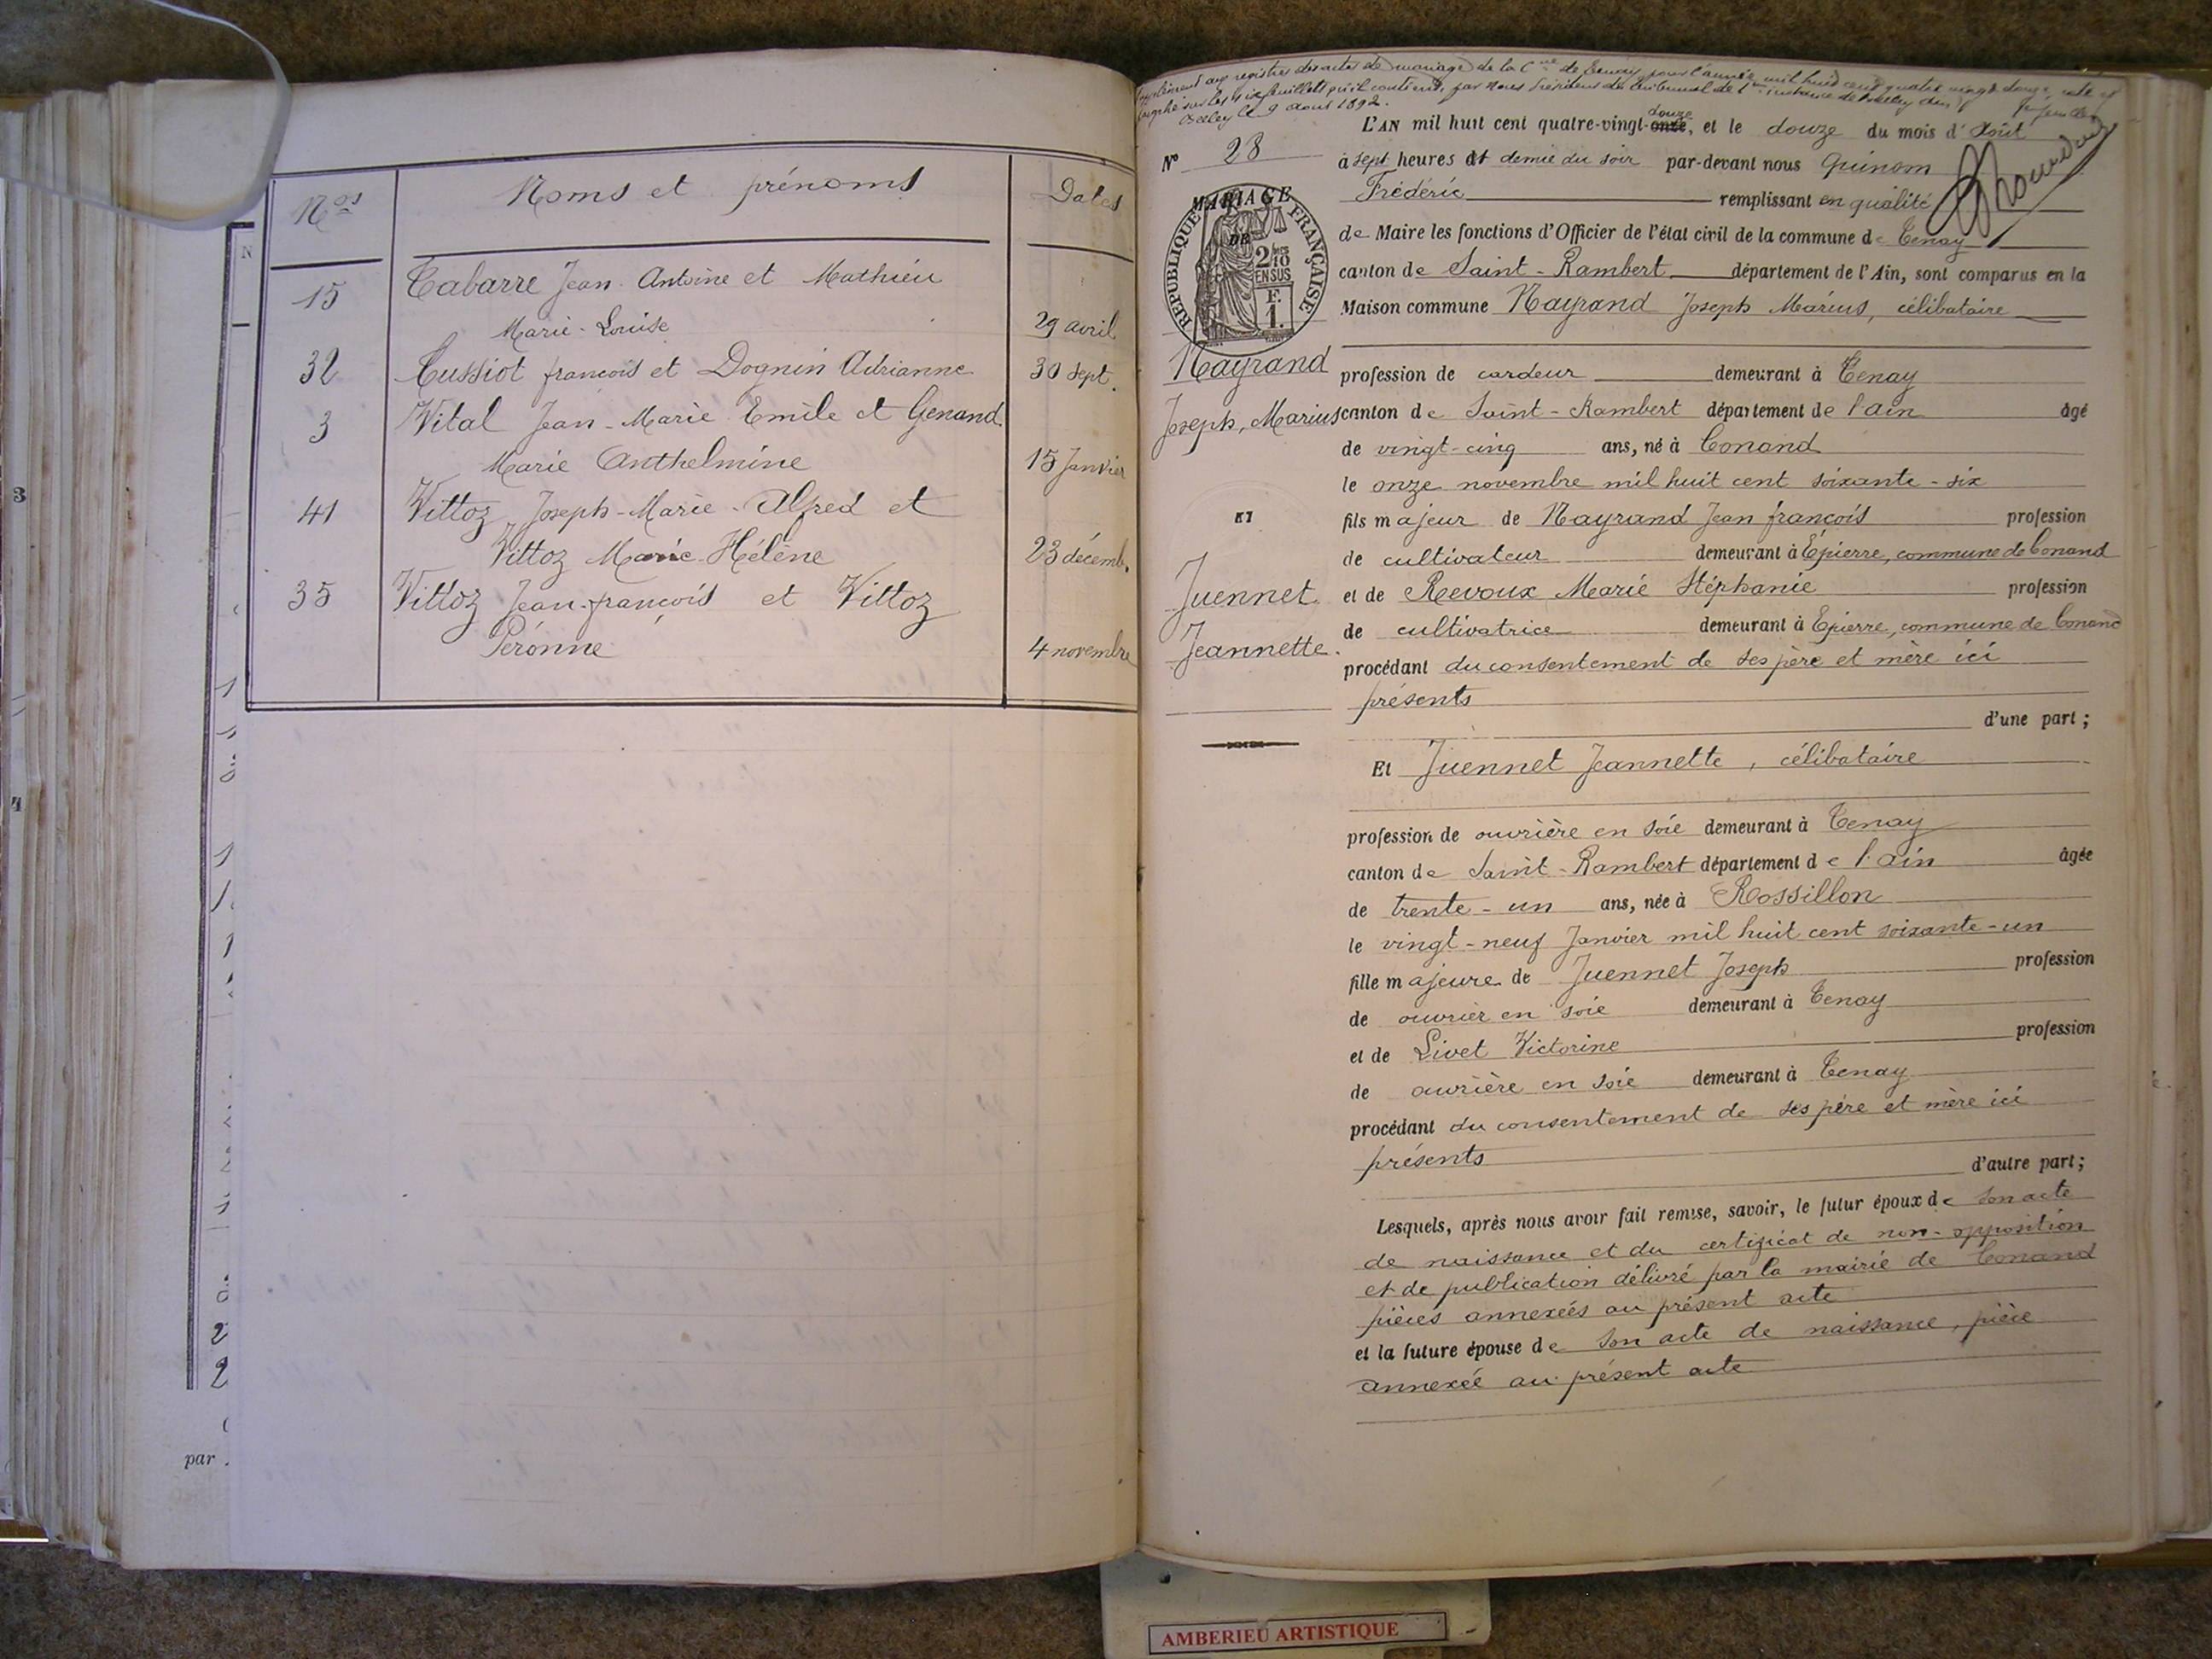 Nos Noms et prénoms Dates
15 Tabarre Jean-Antoine et Mathieu
Marie-Louise 29 avril
32 Tussiot françois et Dognin Adrianne 30 sept.
3 Vital Jean-Marie Emile et Genand
Marie Anthelmine 15 Janvier
41 Vittoz Joseph-Marie-Alfred et
Vittoz Marie-Hélène 23 décemb.
35 Vittoz Jean-françois et Vittoz
Péronne 4 novembre
N
3
4
par
Supplément aux registres des actes de mariage de la Cne de Tenay pour l'année mil huit cent quatre vingt douze, coté et
paraphé sur les six feuillets qu'il contient, par Nous Président du tribunal de 1ère instance de Belley
Belley le 9 Aout 1892.
N° 28
L'AN mil huit cent quatre-vingt-onze, et le douze du mois d'Août
douze
à sept heures et demie du soir par-devant nous Quinom
Frédéric remplissant en qualité
de Maire les fonctions d'Officier de l'état civil de la commune de Tenay
canton de Saint-Rambert département de l'Ain, sont comparus en la
Maison commune Nayrand Joseph Marius, célibataire
MARIAGE
REPUBLIQUE FRANÇAISE
DE
2/10
EN SUS
F.
1.
Nayrand
Joseph, Marius
ET
Juennet
Jeannette.
profession de cardeur demeurant à Tenay
canton de Saint-Rambert département de l'ain âgé
de vingt-cinq ans, né à Conand
le onze novembre mil huit cent soixante-six
fils majeur de Nayrand Jean françois profession
de cultivateur demeurant à Épierre, commune de Conand
et de Revoux Marie Stéphanie profession
de cultivatrice demeurant à Epierre, commune de Conand
procédant du consentement de ses père et mère ici
présents
d'une part ;
Et Juennet Jeannette, célibataire
profession de ouvrière en soie demeurant à Tenay
canton de Saint-Rambert département de l'ain âgée
de trente-un ans, née à Rossillon
le vingt-neuf Janvier mil huit cent soixante-un
fille majeure de Juennet Joseph profession
de ouvrier en soie demeurant à Tenay
et de Livet Victorine profession
de ouvrière en soie demeurant à Tenay
procédant du consentement de ses père et mère ici
présents
d'autre part ;
Lesquels, après nous avoir fait remise, savoir, le futur époux de son acte
de naissance et du certificat de non-opposition
et de publication délivré par la mairie de Conand
pièces annexées au présent acte
et la future épouse de son acte de naissance, pièce
annexée au présent acte
AMBERIEU ARTISTIQUE